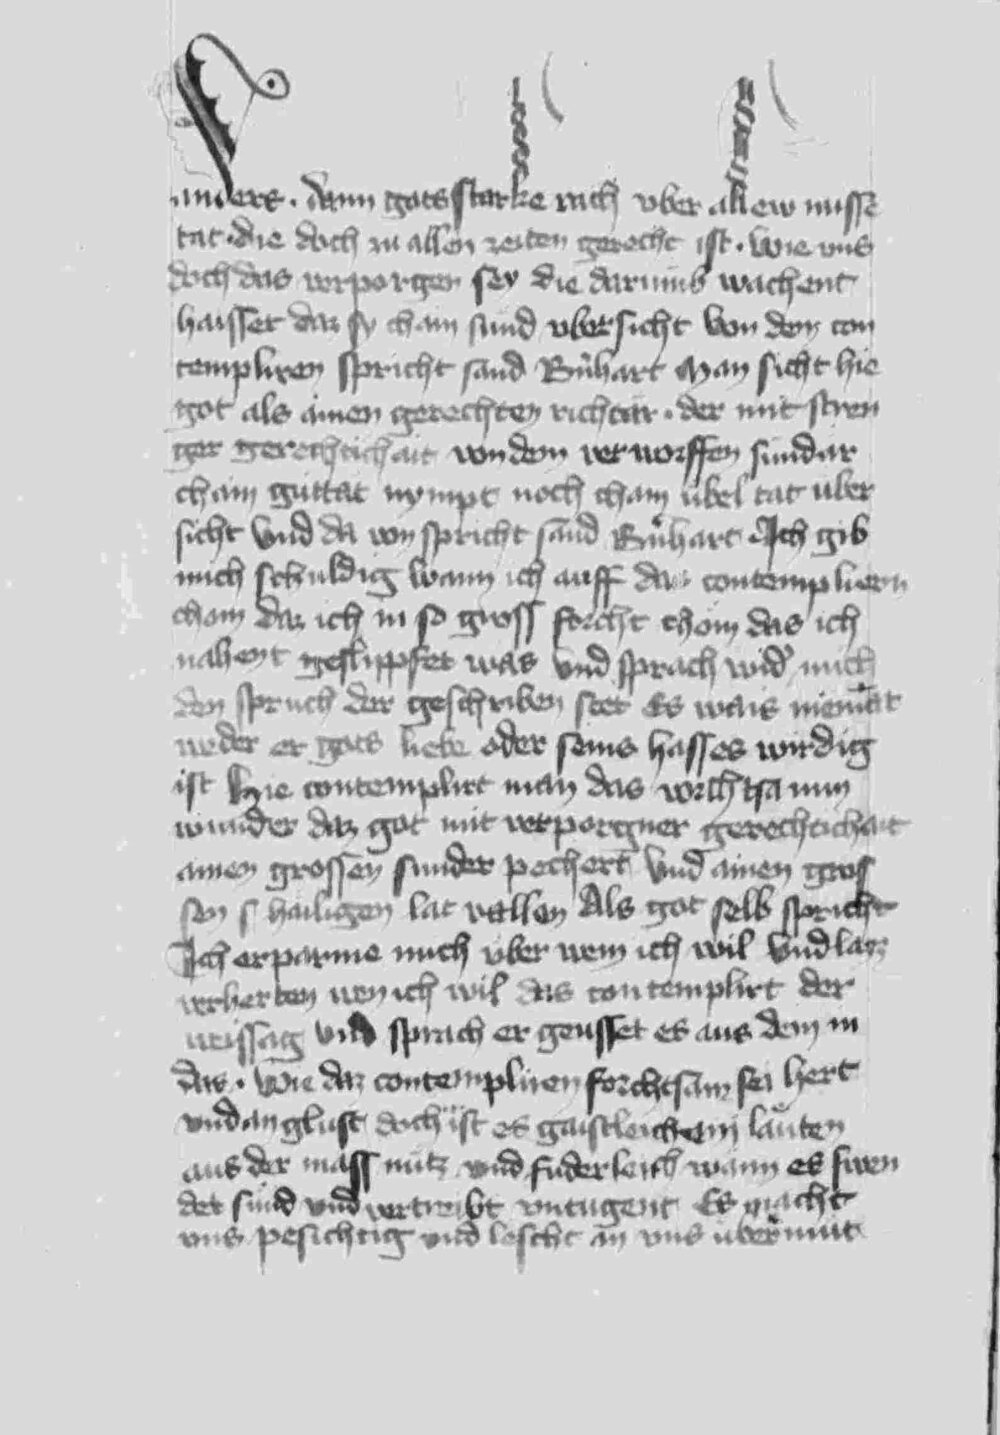 anders · dann gots starke rach vber allew misse
tat · die doch zu allen zeiten gerecht ist · wie vns
doch das verporgen sey die darumb wachent
haisset daz sy chain sund vbersicht Von dem con
templiren spricht sand Bn̂hart Man sicht hie
got als ainen gerechten richtär · der mit stren
ger gerechtichait von dem verworffen sündär
chain güttat nympt noch chain übel tat über
sicht Vnd da von spricht sand Bn̂hart · Ich gib
mich schuldig wann ich auff daz contempliern
chom daz ich in so gross forcht chom das ich
nahent geslippfet was vnd sprach wid̕ mich
den spruch der geschriben stet Es wais niemāt
weder er gots liebe oder seins hasses wirdig
ist Hie contemplirt man das vorchtsamm
wunder daz got mit verporgner gerechtichait
ainen grossen sunder pechert Vnd ainen gros
sen s hailigen lat vallen Als got selb spricht
Ich erparme mich über wem ich wil Vnd laz
verherten wen ich wil das contemplirt der
weissag Vnd sprach er geusset es aus dem in
das · Wie daz contempliren forchtsam sei hert
vnd an glust doch ist es gaistleichem läuten
aus der mass nütz vnd fuderleich wann es swen
det sünd vnd vertreibt vntugent Es macht
vns pesichtig vnd lescht an vns übermüt